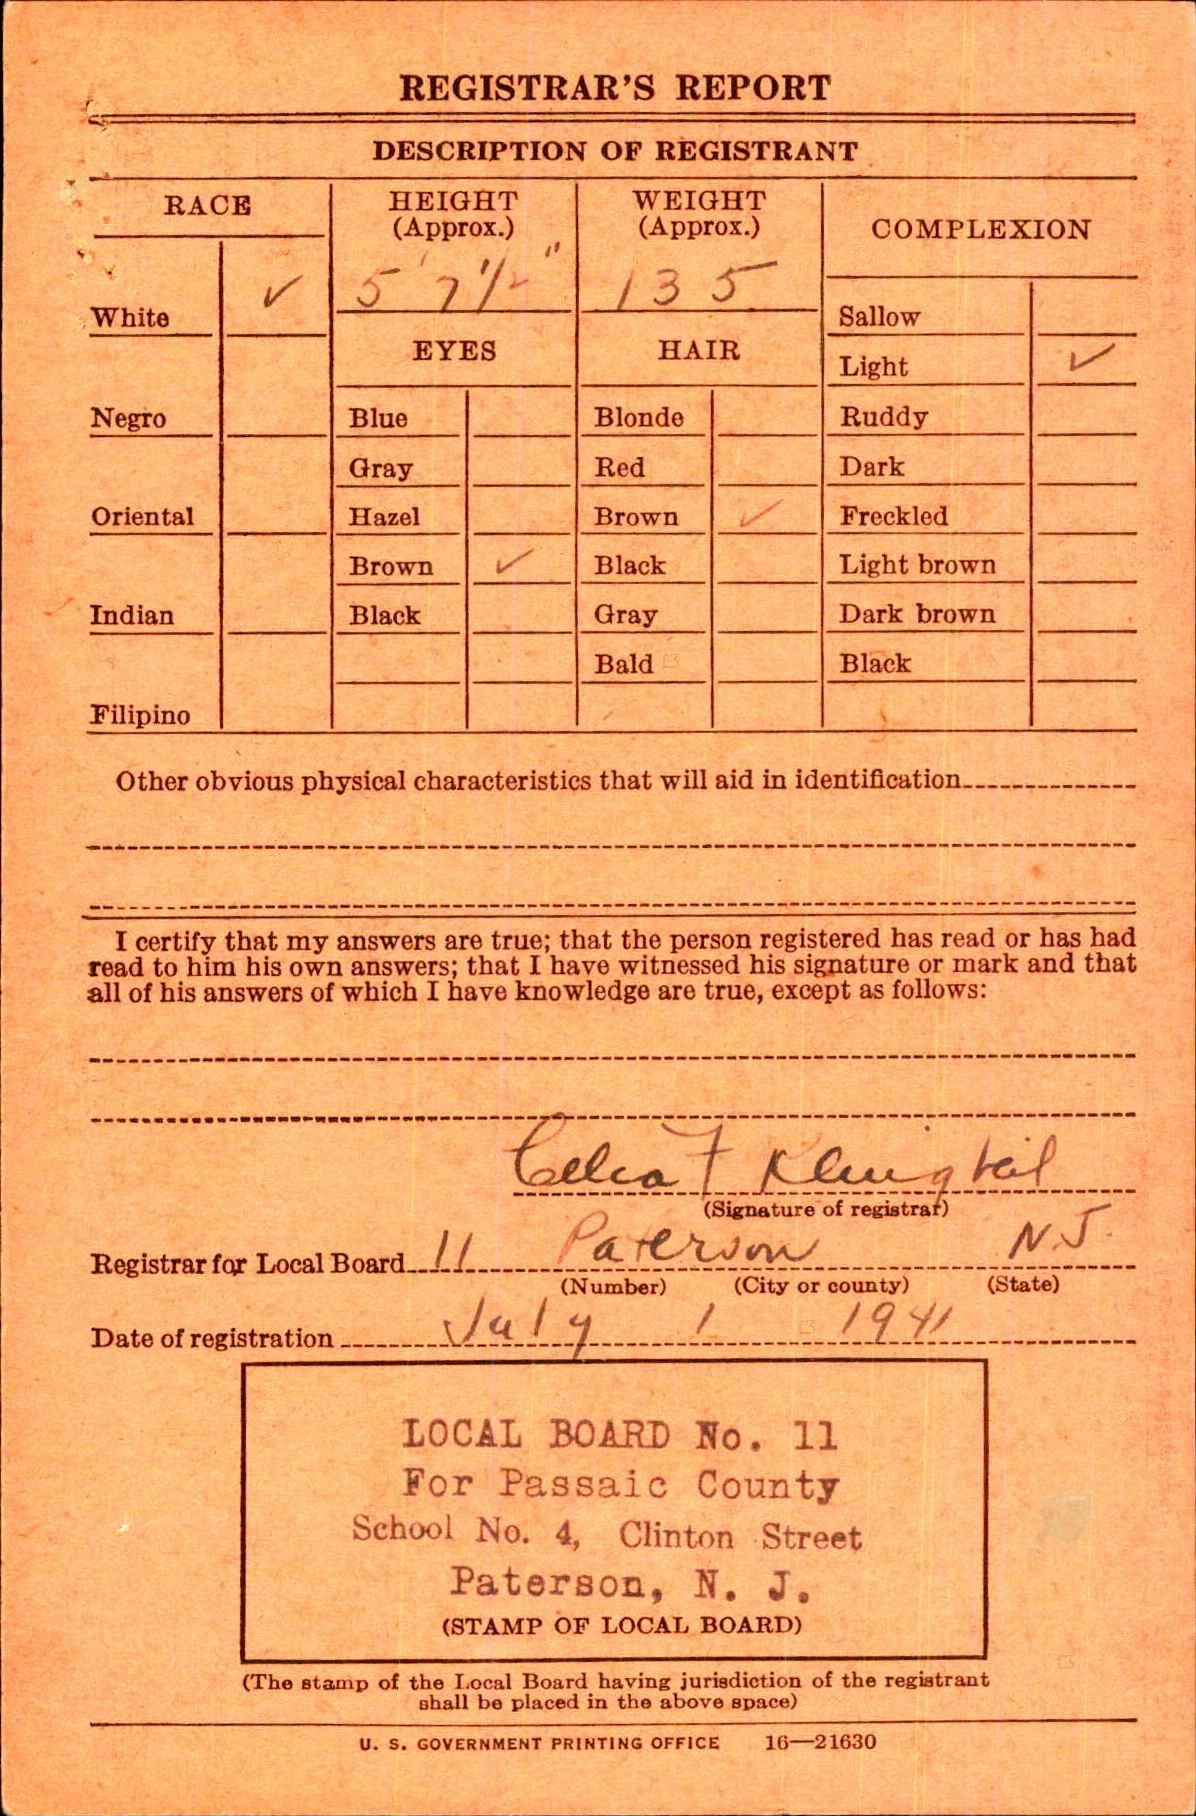 REGISTRAR'S REPORT
DESCRIPTION OF REGISTRANT
RACE
HEIGHT
(Approx.)
WEIGHT
(Approx.)
COMPLEXION
White ✓
5' 7 1/2"
135
Sallow
EYES
HAIR
Light ✓
Negro
Blue
Blonde
Ruddy
Gray
Red
Dark
Oriental
Hazel
Brown ✓
Freckled
Brown ✓
Black
Light brown
Indian
Black
Gray
Dark brown
Bald
Black
Filipino
Other obvious physical characteristics that will aid in identification
I certify that my answers are true; that the person registered has read or has had
read to him his own answers; that I have witnessed his signature or mark and that
all of his answers of which I have knowledge are true, except as follows:
Celia F Klingbeil
(Signature of registrar)
Registrar for Local Board 11 Paterson N.J.
(Number) (City or county) (State)
Date of registration July 1 1941
LOCAL BOARD No. 11
For Passaic County
School No. 4, Clinton Street
Paterson, N. J.
(STAMP OF LOCAL BOARD)
(The stamp of the Local Board having jurisdiction of the registrant
shall be placed in the above space)
U. S. GOVERNMENT PRINTING OFFICE 16—21630